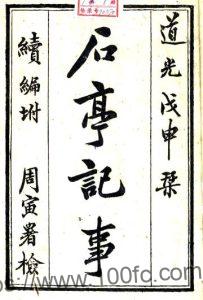 道光戊申栞
石亭記事
續編坿 周寅署檢
www.100fc.com